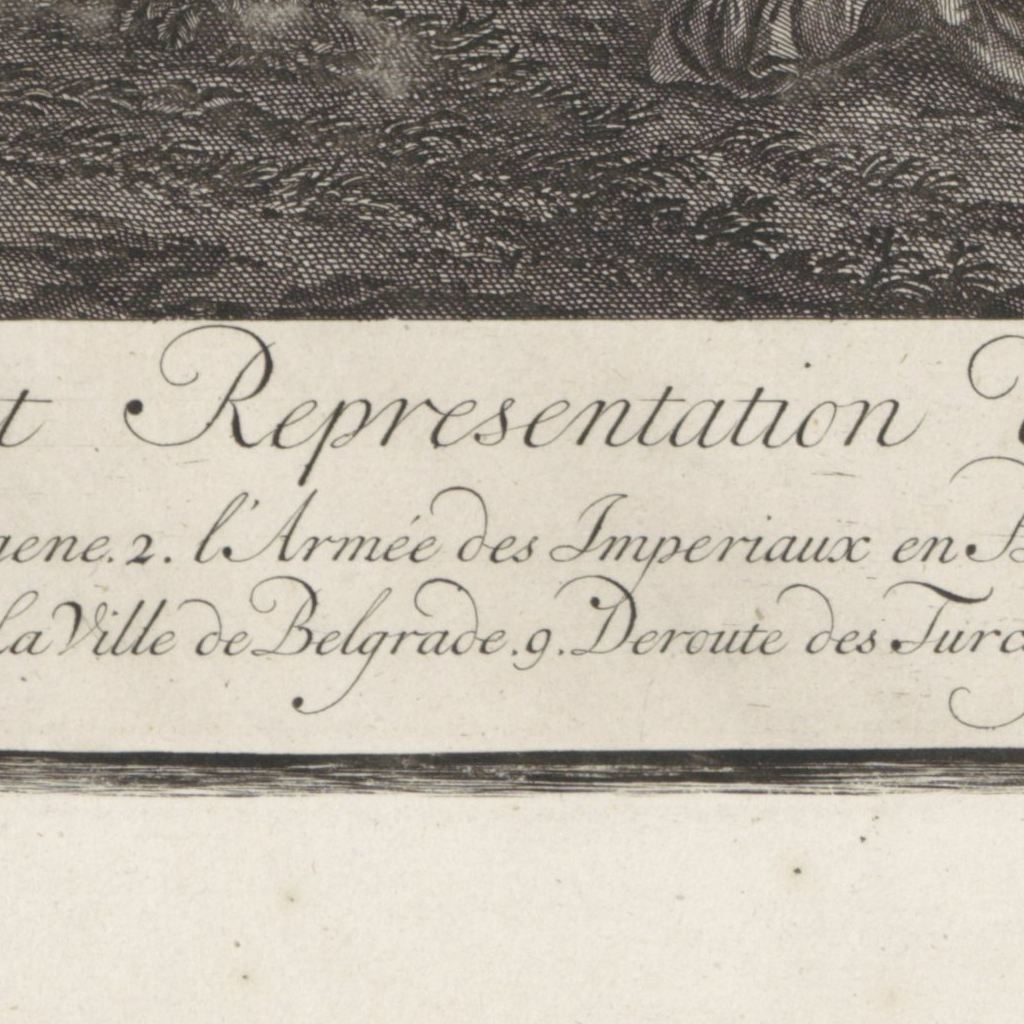 t Representation
gene. 2. l'Armée des Imperiaux en
la Ville de Belgrade. 9. Deroute des Turcs